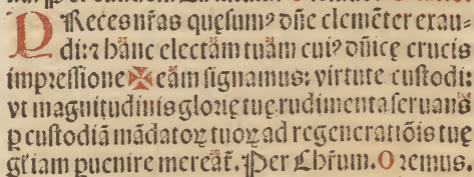 PReces nr̃as quesumꝰ dñe clemẽter exau-
di: ⁊ hãnc electãm tuãm cuiꝰ dñice crucis
impressione ✠ eãm signamus: virtute custodi:
vt magnitudinis glorię tuę rudimenta seruans
ꝑ custodiã mãdatoꝝ tuoꝝ ad regeneratiõis tuę
gl̃iam ꝑuenire mereat̃. Per Chr̃um. Oremus.